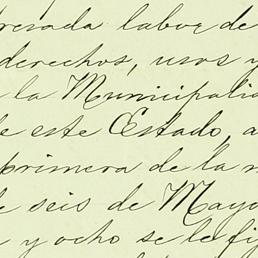 presada labor de
derechos, usos y
la Municipalia
de este Estado, a
primera de la m
de seis de Mayo
y ocho se le fi